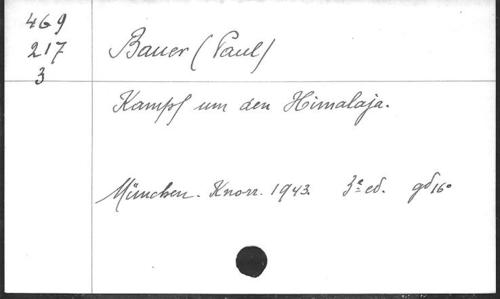 469
217
3
Bauer (Paul)
Kampf um den Himalaja.
München. Knorr. 1943. 3e ed. gd 16°